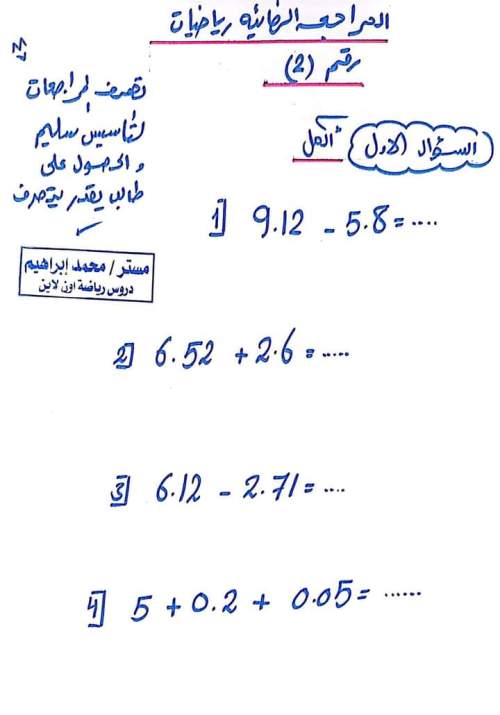 المراجعه النهائيه رياضيات
رقم (2)
تهدف المراجعات
لتأسيس سليم
والحصول على
طالب يقدر يتصرف
مستر / محمد إبراهيم
دروس رياضة اون لاين
السؤال الاول
أكمل
1] 9.12 - 5.8 = ....
2] 6.52 + 2.6 = .....
3] 6.12 - 2.71 = ....
4] 5 + 0.2 + 0.05 = ......